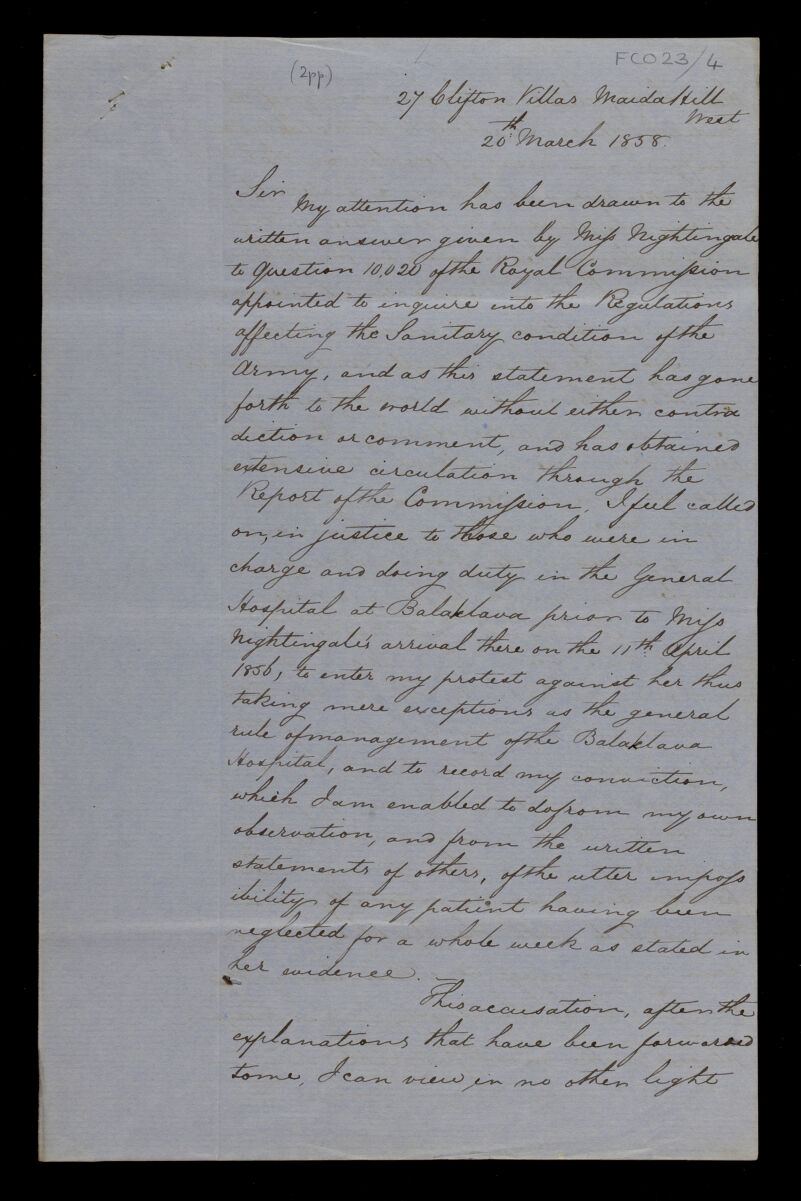 (2pp)
FCO23/4
27 Clifton Villas Maida Hill
West
20th March 1858.
Sir
My attention has been drawn to the
written answer given by Miss Nightingale
to Question 10,020 of the Royal Commission
appointed to inquire into the Regulations
affecting the Sanitary condition of the
Army, and as this statement has gone
forth to the world without either contra
diction or comment, and has obtained
extensive circulation through the
Report of the Commission, I feel called
on, in justice to those who were in
charge and doing duty in the General
Hospital at Balaklava prior to Miss
Nightingale's arrival there on the 11th April
1856, to enter my protest against her thus
taking mere exceptions as the general
rule of management of the Balaklava
Hospital, and to record my conviction,
which I am enabled to do from my own
observation, and from the written
statements of others, of the utter imposs
ibility of any patient having been
neglected for a whole week as stated in
her evidence.
This accusation, after the
explanations that have been forwarded
to me, I can view in no other light